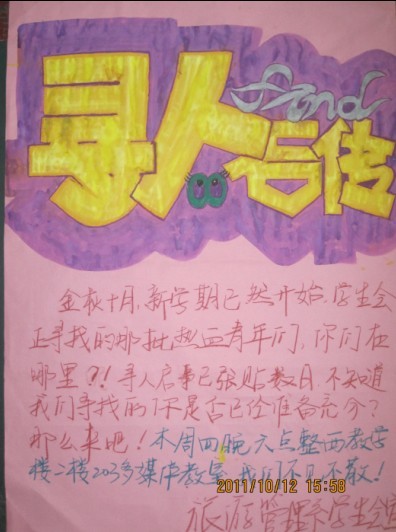 寻人启传
Find
金秋十月,新学期已然开始,学生会
正寻找的那批热血青年们,你们在
哪里?!寻人启事已张贴数日,不知道
我们寻找的你是否已经准备充分?
那么来吧!本周四晚六点整西教学
楼二楼203多媒体教室,我们不见不散!
2011/10/12 15:58
旅游管理系学生会宣